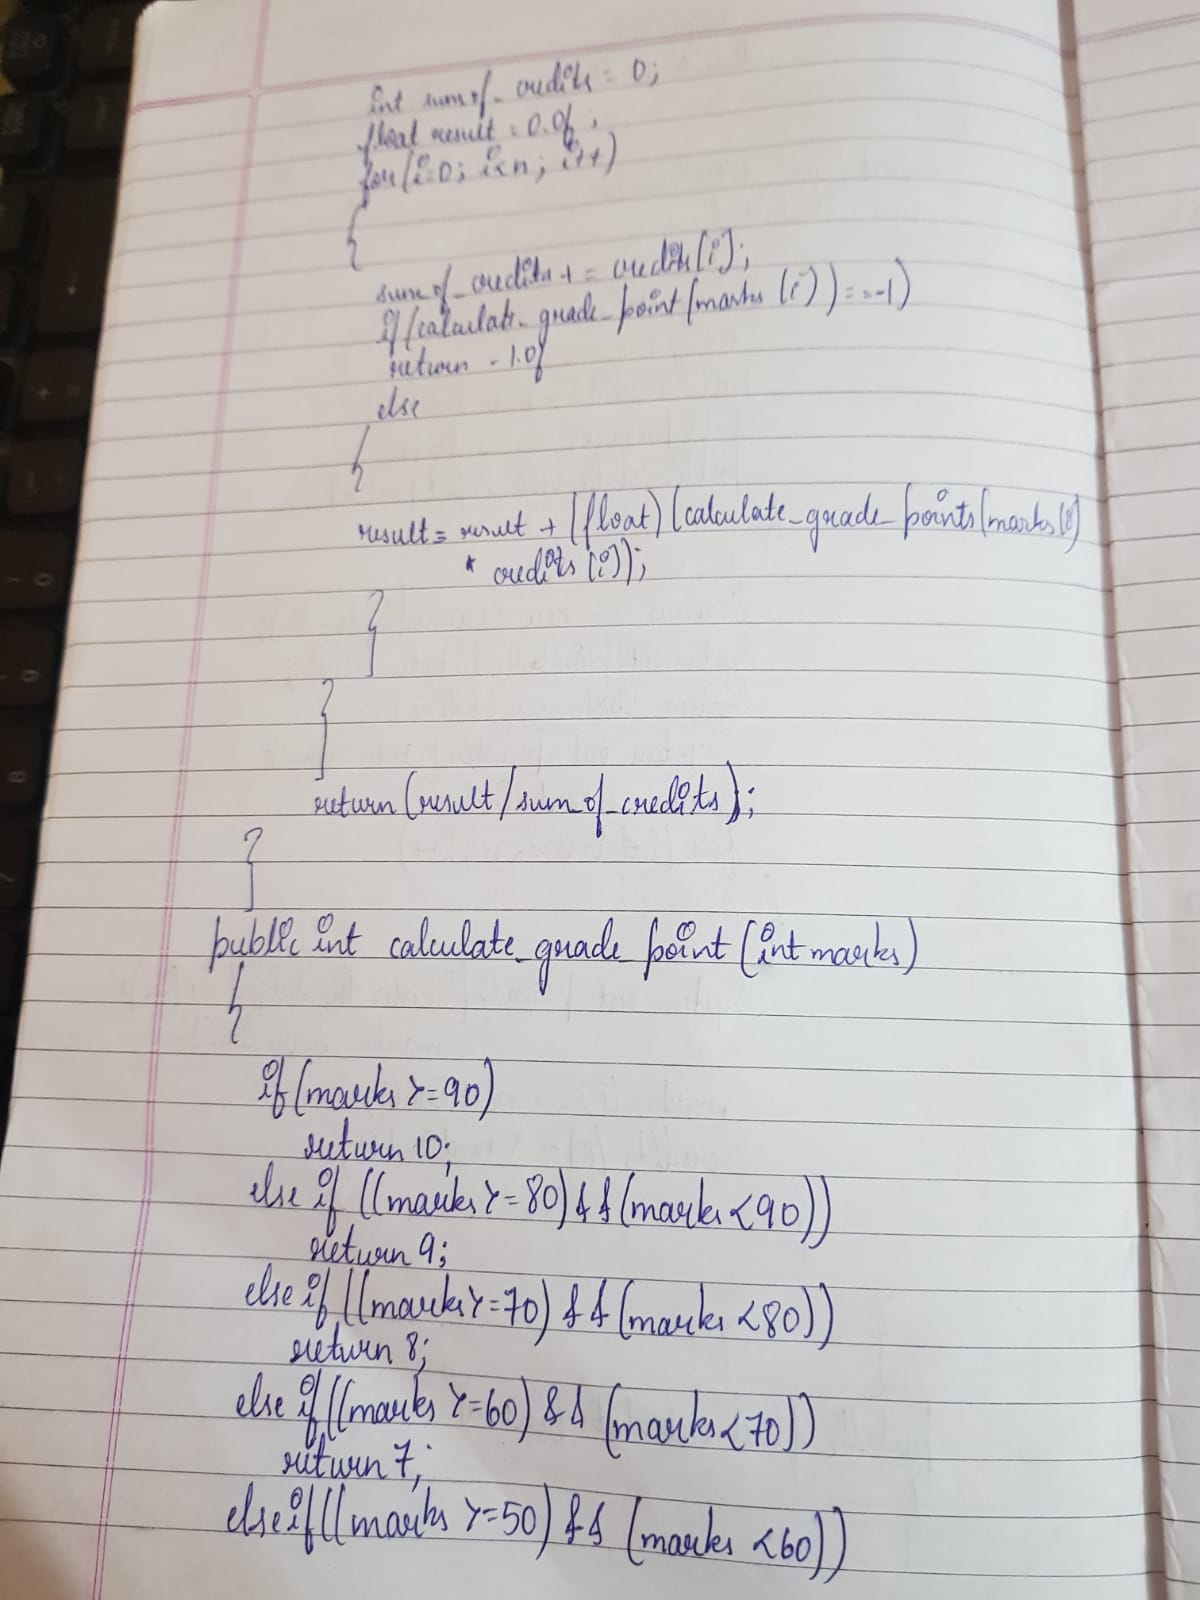 int sum of_ credits = 0;
float result = 0.0f;
for(i=0; i<n; i++)
{
sum of_credits + = credits[i];
if(calculate_ grade_ point(marks (i)) = = -1)
return - 1.0f
else
{
result = result + (float)(calculate_grade_points(marks(i)
* credits (i));
}
}
return(result/sum_of_credits);
}
public int calculate_grade_point(int marks)
{
if(marks >=90)
return 10;
else if ((marks >=80) && (marks <90))
return 9;
else if ((marks >=70) && (marks <80))
return 8;
else if((marks >=60) && (marks <70))
return 7;
else if((marks >=50) && (marks <60))